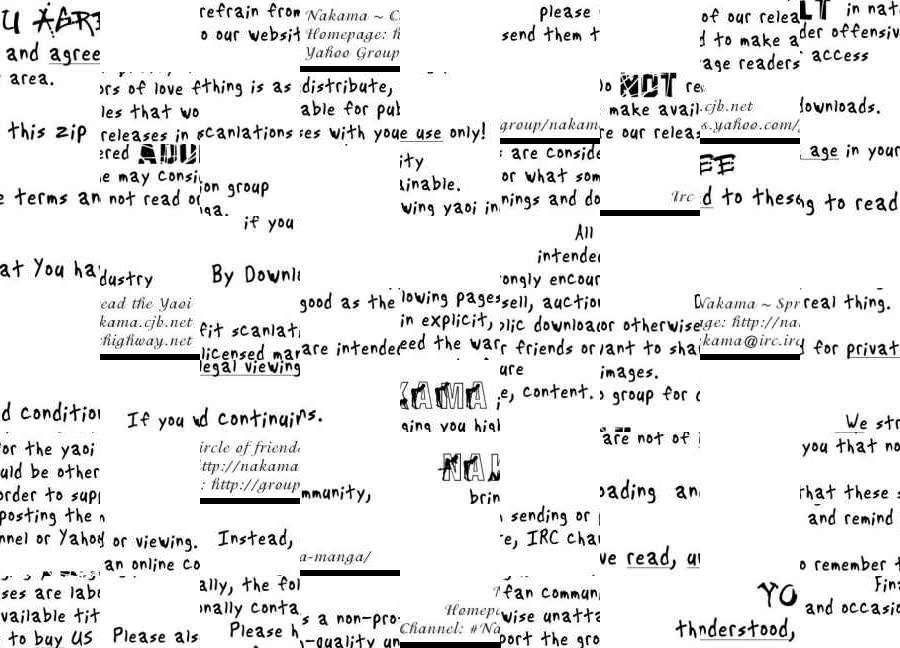 U AGRE refrain from Nakama ~ C please of our relea LT in nat
o our websit Homepage: h send them t d to make a der offensiv
and agree Yahoo Group age readers access
area. ors of love f thing is as distribute, o NOT re
les that wo able for pub make avail .cjb.net ownloads.
this zip releases in scanlations es with you e use only! group/nakam re our releas s.yahoo.com/
ered ADU ity are conside EE age in your
e may consi on group ainable. or what som
e terms an not read or ga. wing yaoi in nings and do Irc d to these g to read
if you All
intended
at You ha dustry By Downl ongly encour
ead the Yaoi good as the lowing pages sell, auction Nakama ~ Spr real thing.
kama.cjb.net fit scanlat in explicit, lic downloa or otherwise age: http://na
highway.net licensed mar are intended eed the war r friends or ant to sha kama@irc.irc d for privat
legal viewing ure images.
KAMA e, content. group for
d conditio If you d continui s. ging you high We str
or the yaoi ircle of friend are not of you that no
uld be other ttp://nakama NAK
order to supp : http://group mmunity, brin oading an hat these s
posting the sending or and remind
nnel or Yahoo or viewing. Instead, e, IRC chan
an online co a-manga/ ve read, u o remember t
ses are labe ally, the fol fan commun YO Fina
vailable tit onally conta s a non-pro Homepa wise unatta and occasio
to buy US Please als Please h -quality Channel: #Na port the gro th nderstood,